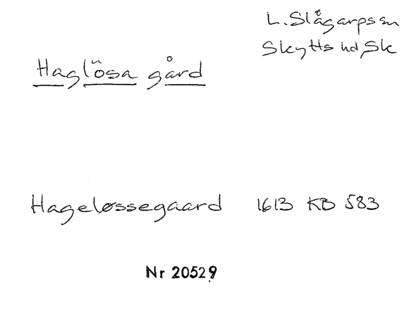 L. Slågarps sn
Skytts hd, Sk
Haglösa gård
Hageløssegaard 1613 KB 583
Nr 20529